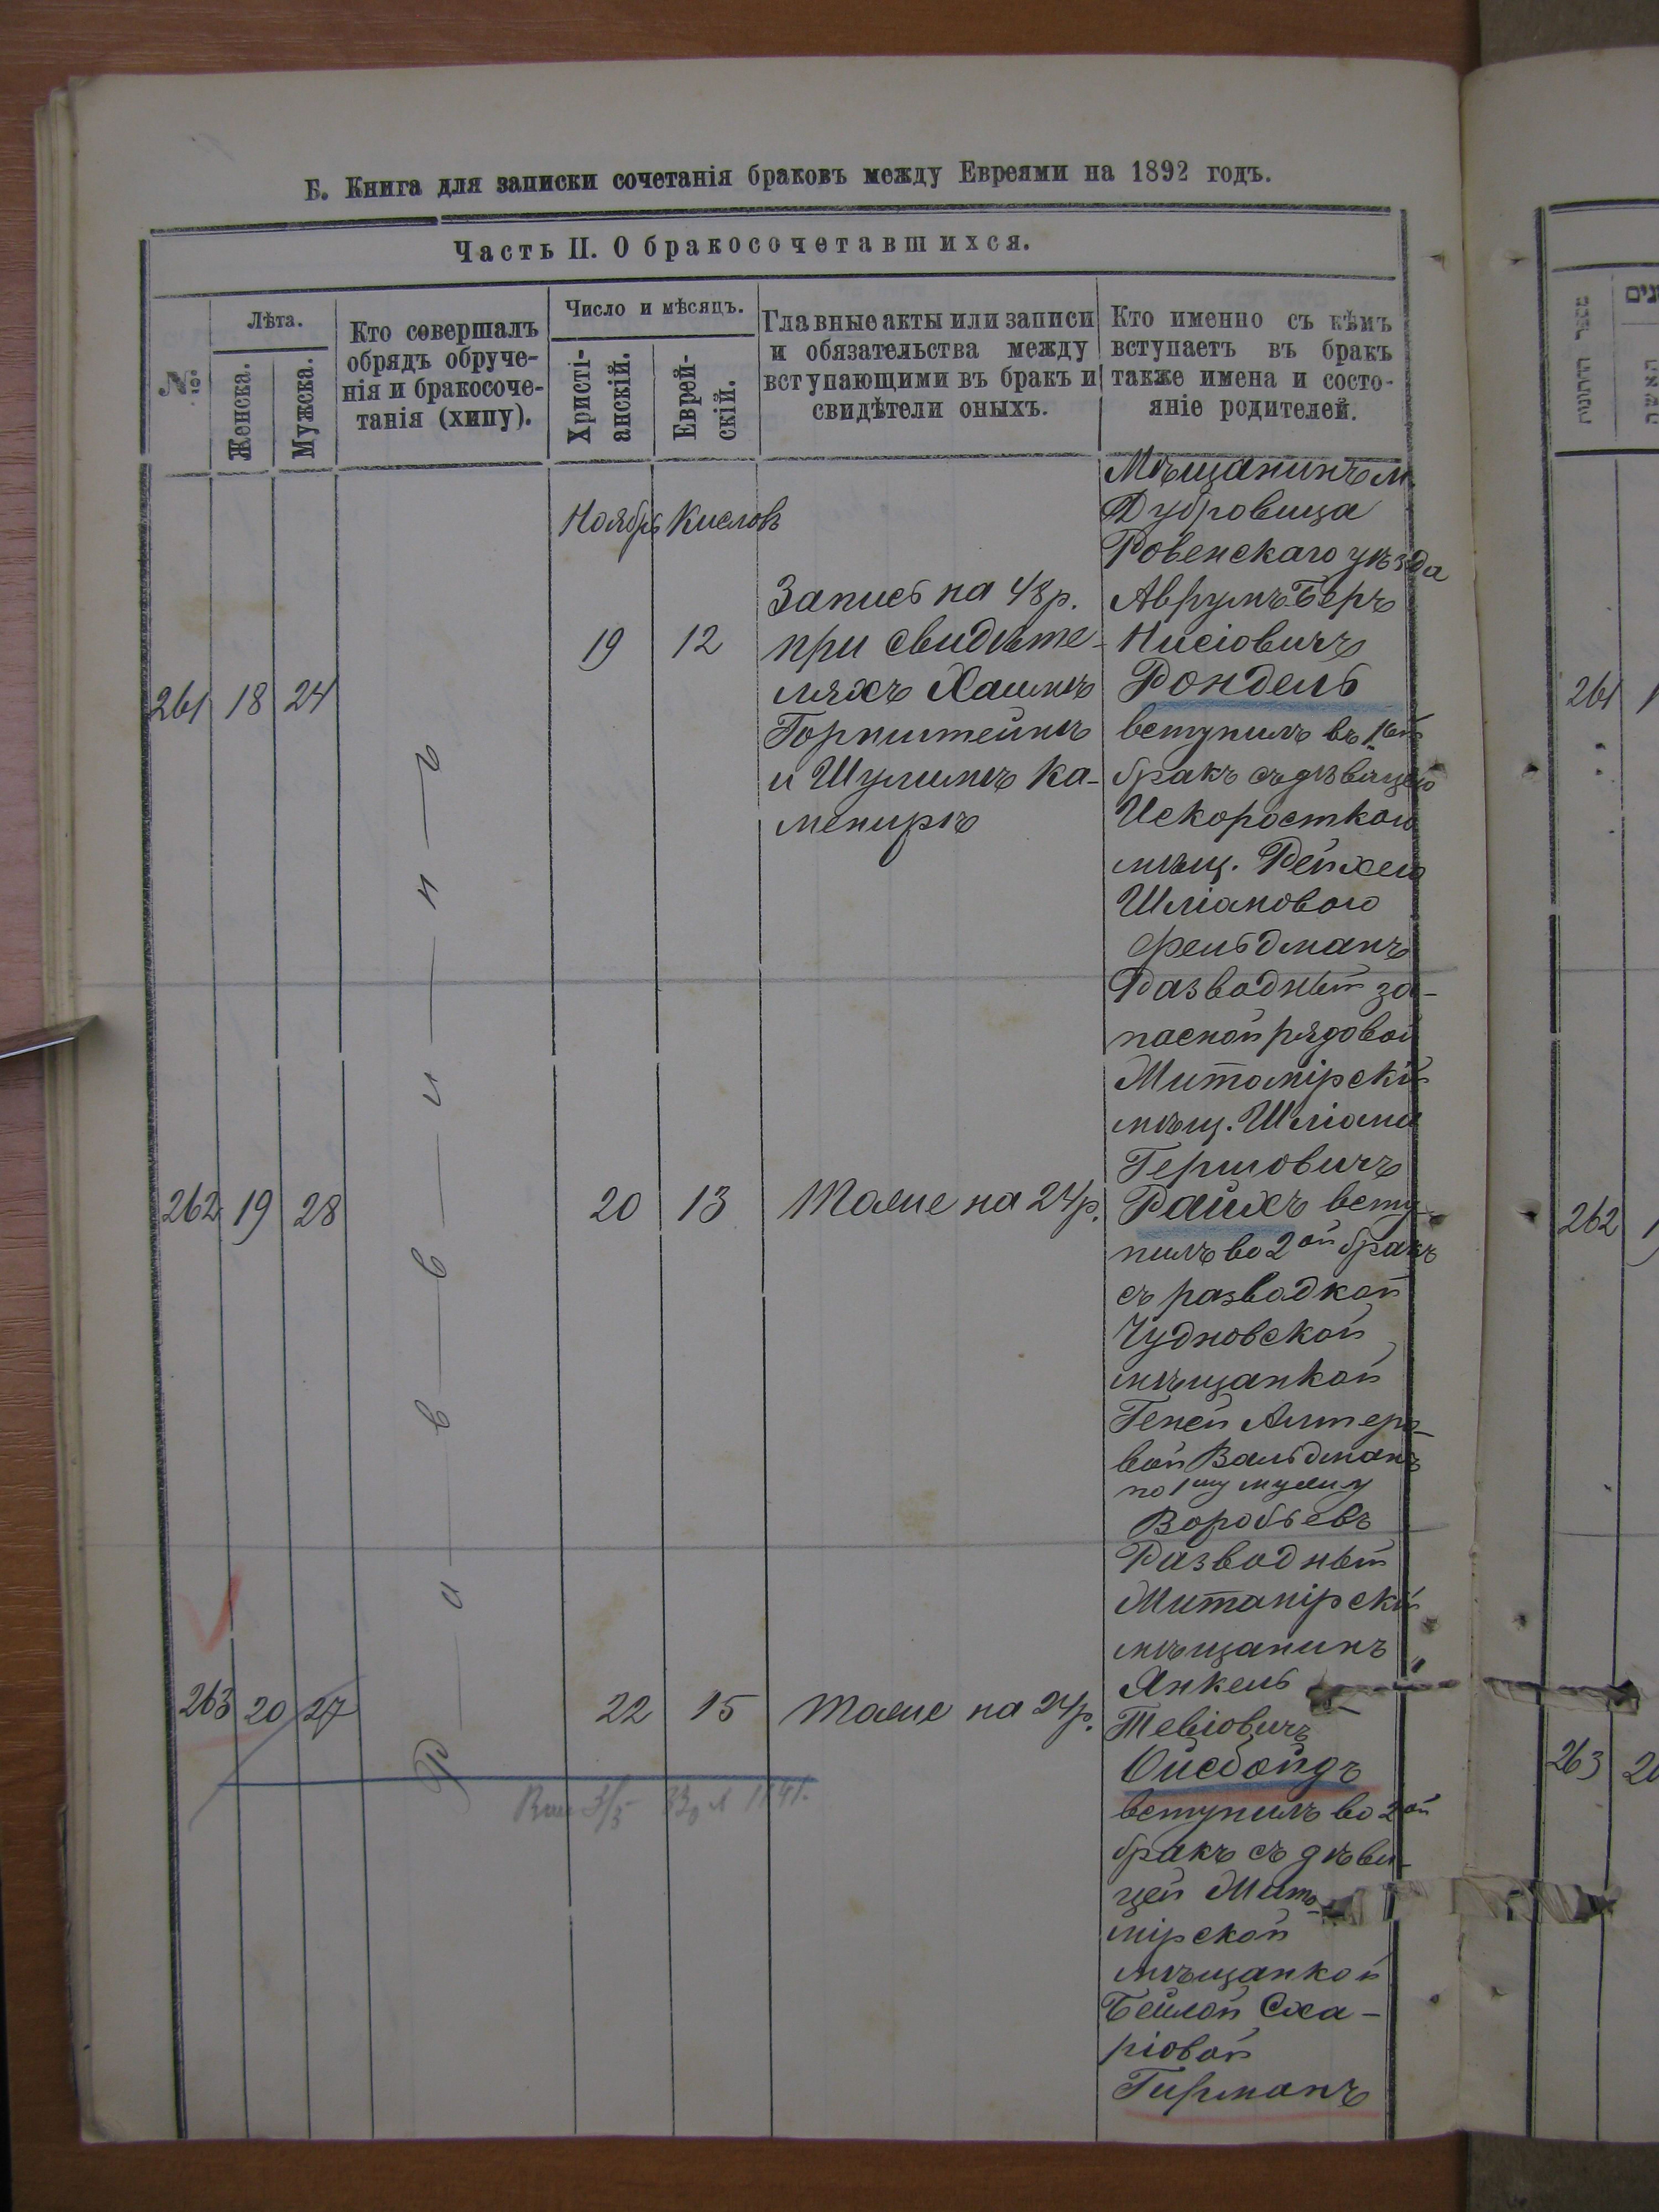 Б. Книга для записки сочетанія браковъ между Евреями на 1892 годъ.
Часть II. О бракосочетавшихся.
№
Лѣта.
Женска.
Мужска.
Кто совершалъ
обрядъ обруче-
нія и бракосоче-
танія (хипу).
Число и мѣсяцъ.
Христі-
анскій.
Еврей-
скій.
Главные акты или записи
и обязательства между
вступающими въ бракъ и
свидѣтели оныхъ.
Кто именно съ кѣмъ
вступаетъ въ бракъ
также имена и состо-
яніе родителей.
Ноябрь Кислевъ
261 18 24
Раввинъ
19 12
Запись на 48 р.
при свидѣте-
ляхъ Хаимъ
Горнштейнъ
и Шулимъ Ка-
менирь
Мѣщанинъ м.
Дубровица
Ровенскаго уѣзда
Аврумъ-Беръ
Нисіовичъ
Рондель
вступилъ въ 1ый
бракъ съ дѣвицею
Искоросткою
мѣщ. Рейхею
Шліомовою
Фельдманъ
262 19 28
20 13
Тоже на 24 р.
Разводный за-
пасной рядовой
Житомірскій
мѣщ. Шліома
Гершовичъ
Райхъ всту-
пилъ во 2ой бракъ
съ разводкой
Чудновской
мѣщанкой
Геней Алтеро-
вой Вальдманъ
по 1му мужу
Воробьевъ
263 20 27
22 15
Тоже на 24 р.
Разводный
Житомірскій
мѣщанинъ
Янкель
Тевіовичъ
Ойсбойдъ
вступилъ во 2ой
бракъ съ дѣви-
цей Жито-
мірской
мѣщанкой
Бейлой Сха-
ріовой
Гирманъ
261
262
263 20